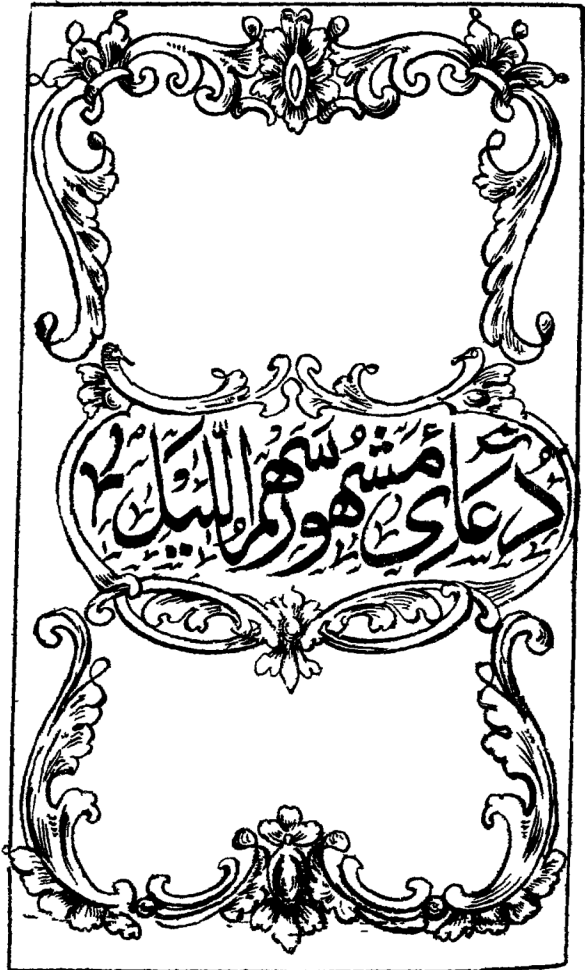 دُعَای مَشهُور سَهمُ اللَّیَل